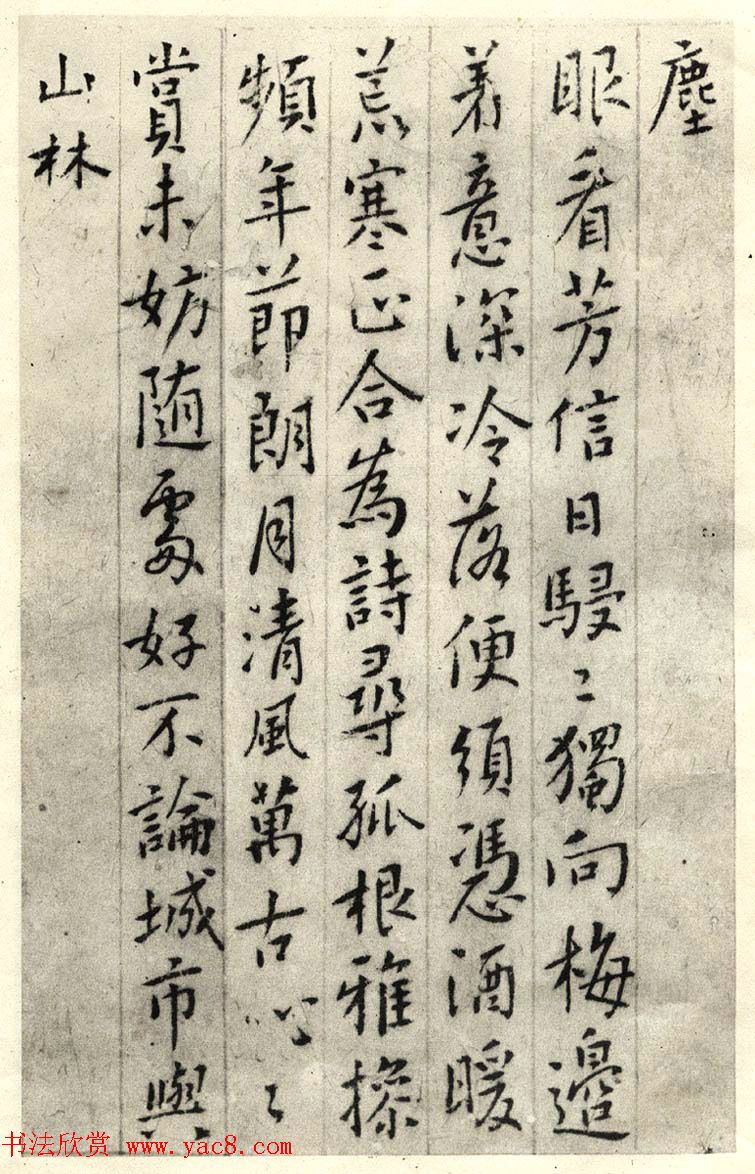 塵
眼看芳信日駸〻獨向梅邊
著意深冷落便須憑酒暖
荒寒正合為詩尋孤根雅操
頻年節朗月清風萬古心〻
賞未妨隨處好不論城市與
山林
书法欣赏 www.yac8.com